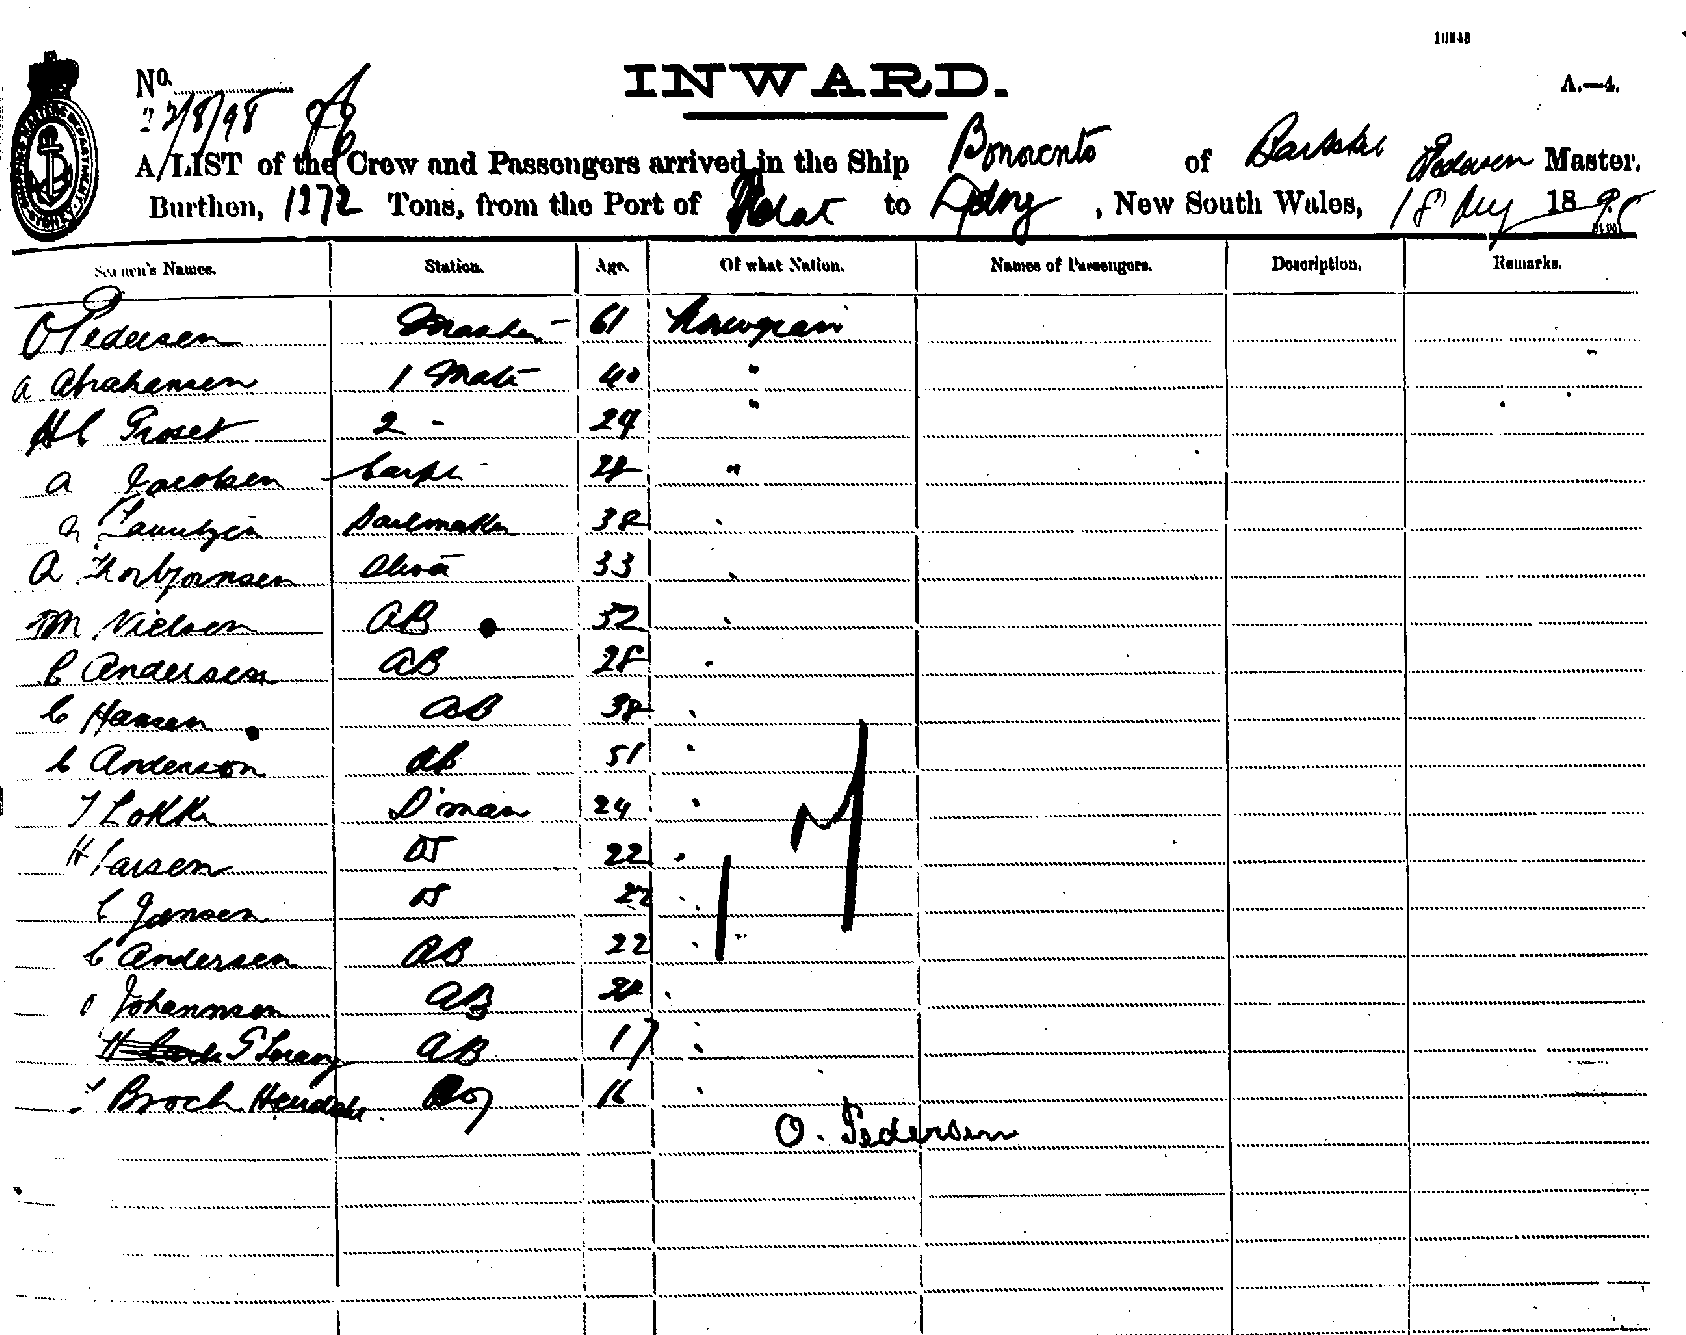 INWARD.
A.—4.
No.
22/8/98
A LIST of the Crew and Passengers arrived in the Ship of Pedersen Master,
Burthen, 1272 Tons, from the Port of to Sydney, New South Wales, 18 Aug 1898
Seamen's Names. Station. Age. Of what Nation. Names of Passengers. Description. Remarks.
O Pedersen Master - 61 Norwegian
A Abrahamsen 1 Mate 40 "
H C Groset 2 - 29 "
A Jacobsen Carp 28 "
Lauritzen Sailmaker 38
A Thorbjornsen 33
M Nielsen AB 32
C Andersen AB 28
C Hansen AB 38
C Anderson AB 51
T Lokke D'man 24
H Larsen OS 22
C Jansen OS 22
C Andersen AB 22
O Johannsen AB
AB 17
Broch Boy 16
O. Pedersen
17